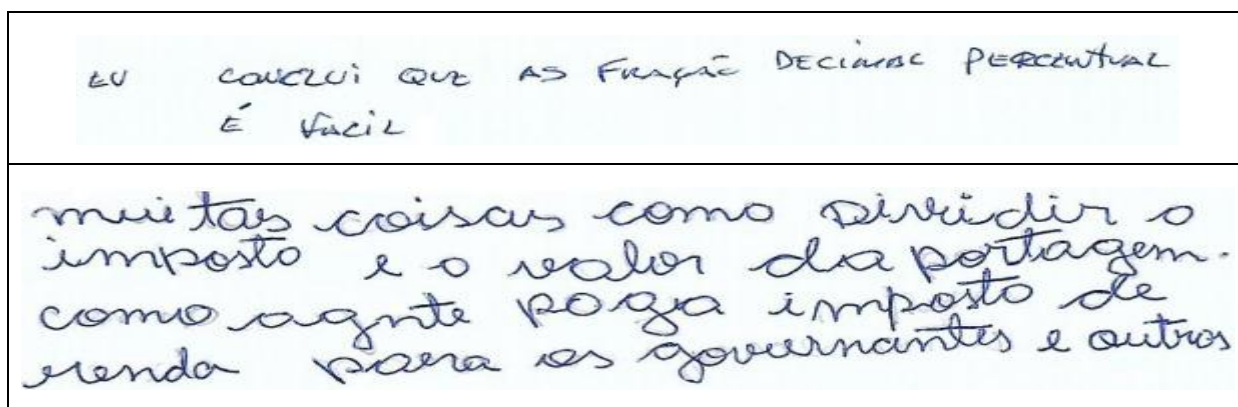 EU CONCLUI QUE AS FRAÇÃO DECIMAL PERCENTUAL
É FÁCIL
muitas coisas como dividir o
imposto e o valor da portagem.
como agnte paga imposto de
renda para os governantes e outros